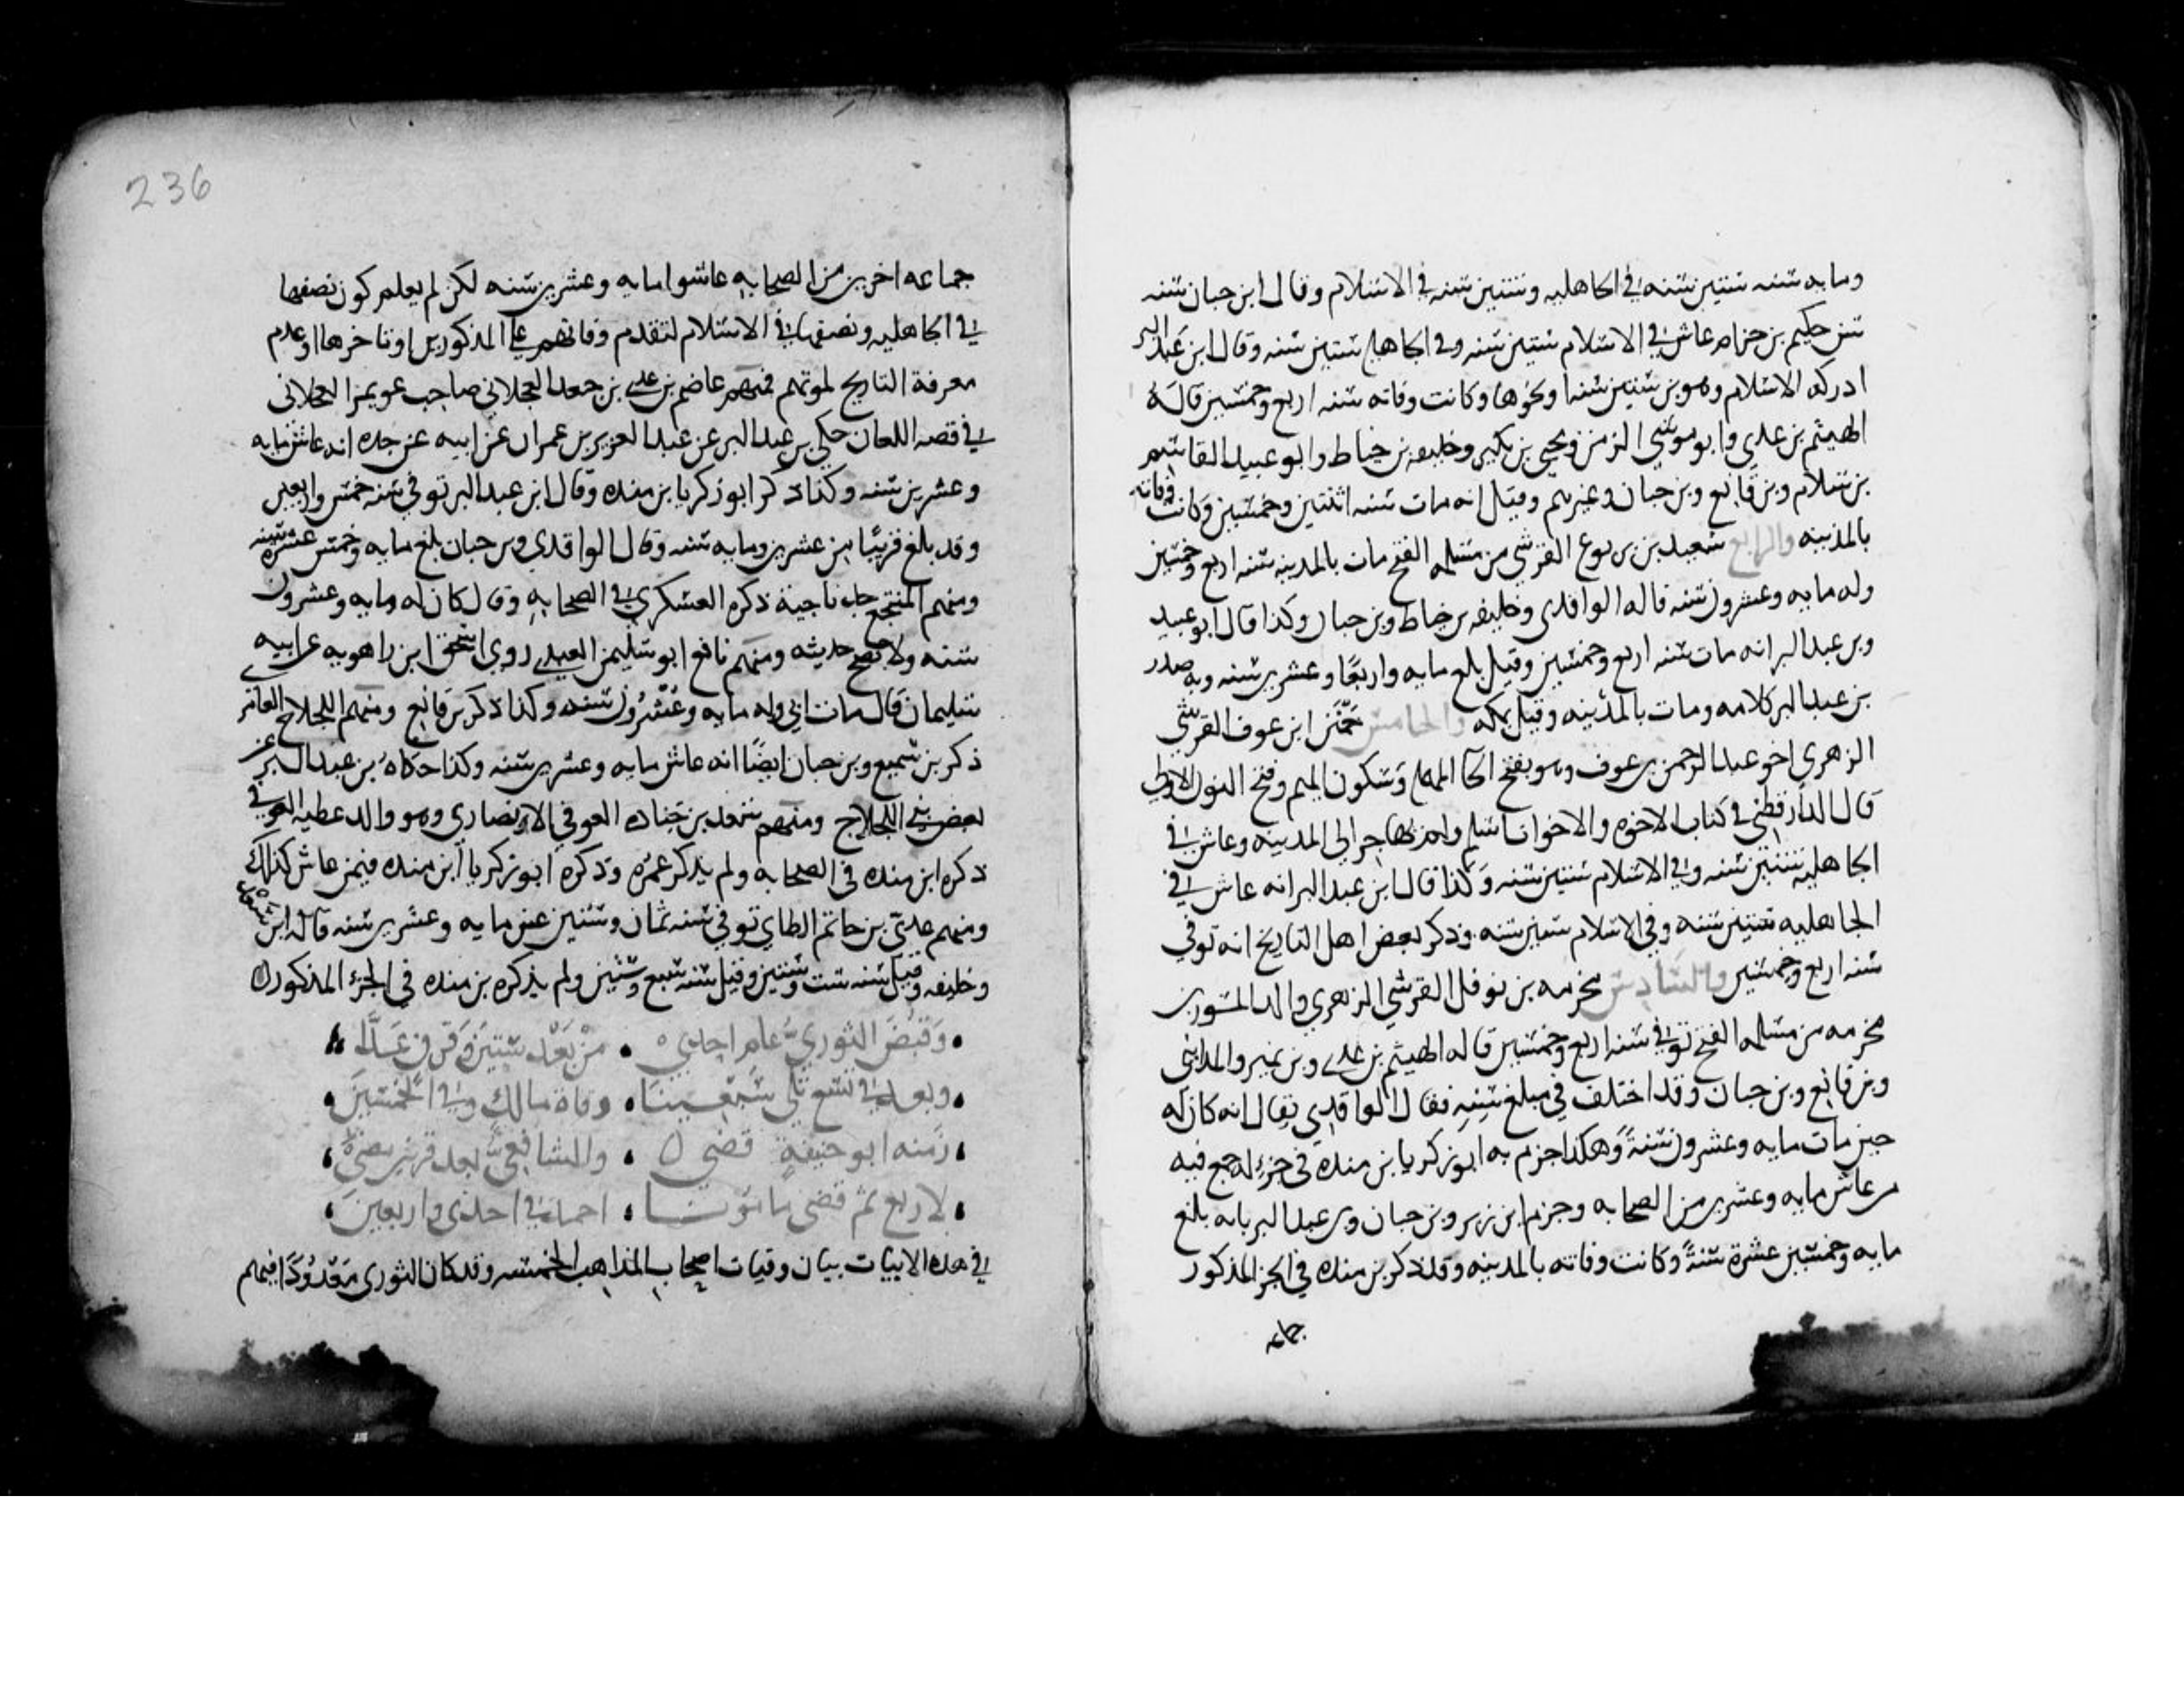 ومايه سنه ستين سنه في الجاهليه وستين سنه في الاسلام وقال ابن حبان سنه
سن حكيم بن حزام عاش في الاسلام ستين سنه وفي الجاهليه ستين سنه وقال ابن عبد البر
ادركه الاسلام وهو بن ستين سنه او نحوها وكانت وفاته سنه اربع وخمسين قاله
الهيثم بن عدي وابو موسي الزمن ويحيي بن بكير وخليفه بن خياط وابو عبيد القاسم
بن سلام وبن قانع وبن حبان وغيرهم وقيل انه مات سنه اثنتين وخمسين وكانت وفاته
بالمدينه والرابع سعيد بن يربوع القرشي من مسلمه الفتح مات بالمدينه سنه اربع وخمسين
وله مايه وعشرون سنه قاله الواقدي وخليفه بن خياط وبن حبان وكذا قال ابو عبيد
وبن عبد البر انه مات سنه اربع وخمسين وقيل بلغ مايه واربعًا وعشرين سنه وبه صدر
بن عبد البر كلامه ومات بالمدينه وقيل بمكه والخامس حمنن ابن عوف القرشي
الزهري اخو عبد الرحمن بن عوف وهو بفتح الحا المهمله وسكون الميم وفتح النون الاولي
قال الدارقطني في كتاب الاخوه والاخوات اسلم ولم يهاجر الى المدينه وعاش في
الجاهليه ستين سنه وفي الاسلام ستين سنه وكذا قال ابن عبد البر انه عاش في
الجاهليه ستين سنه وفي الاسلام ستين سنه وذكر بعض اهل التاريخ انه توفي
سنه اربع وخمسين والسادس مخرمه بن نوفل القرشي الزهري والد المسور بن
مخرمه من مسلمه الفتح توفي سنه اربع وخمسين قاله الهيثم بن عدي وبن نمير والمدايني
وبن قانع وبن حبان وقد اختلف في مبلغ سنه فقال الواقدي يقال انه كان له
حين مات مايه وعشرون سنةً وهكذا جزم به ابو زكريا بن منده في جزء له جمع فيه
من عاش مايه وعشرين من الصحابه وجزم ابن زبر وبن حبان وبن عبد البر بانه بلغ
مايه وخمسين عشرة سنةً وكانت وفاته بالمدينه وقد ذكر بن منده في الجز المذكور
جماعه
236
جماعه اخرين من الصحابه عاشوا مايه وعشرين سنه لكن لم يعلم كون نصفها
في الجاهليه ونصفها في الاسلام لتقدم وفاتهم على المذكورين او تاخرها او عدم
معرفة التاريخ لموتهم فمنهم عاصم بن عدي بن جعد العجلاني صاحب عويمر العجلاني
في قصه اللعان حكي بن عبد البر عن عبد العزيز بن عمران عن ابيه عن جده انه عاش مايه
وعشرين سنه وكذا ذكر ابو زكريا بن منده وقال ابن عبد البر توفي سنه خمس واربعين
وقد بلغ قريبًا من عشرين ومايه سنه وقال الواقدي وبن حبان بلغ مايه وخمس عشره سنه
ومنهم المنتجع جد ناجية ذكره العسكري في الصحابه وقال كان له مايه وعشرون
سنه ولا يصح حديثه ومنهم نافع ابو سليمن العبدي روي اسحق ابن راهويه عن ابيه
سليمان قال مات ابي وله مايه وعشرون سنه وكذا ذكر بن قانع ومنهم اللجلاج العامر
ذكر بن سميع وبن حبان ايضًا انه عاش مايه وعشرين سنه وكذا حكاه بن عبد البر عن
بعض بني اللجلاج ومنهم سعد بن جناده العوفي الانصاري وهو والد عطيه العوفي
ذكره ابن منده في الصحابه ولم يذكر عمره وذكره ابو زكريا ابن منده فيمن عاش كذلك
ومنهم عدي بن حاتم الطاي توفي سنه ثمان وستين عن مايه وعشرين سنه قاله ابن سعد
وخليفه وقيل سنه ست وستين وقيل سنه سبع وستين ولم يذكره بن منده في الجزء المذكور
وقبض الثوري عام احدي من بعد ستين وقرن عدا
وبعد في تسع تلي سبعينا وفاة مالك وفي الخمسين
ومنه ابو حنيفة قضي والشافعي بعد قرنين مضي
لاربع ثم قضي مامونا احمد في احدي واربعين
في هذه الابيات بيان وفيات اصحاب المذاهب الخمسه وقد كان الثوري معدودًا فيهم